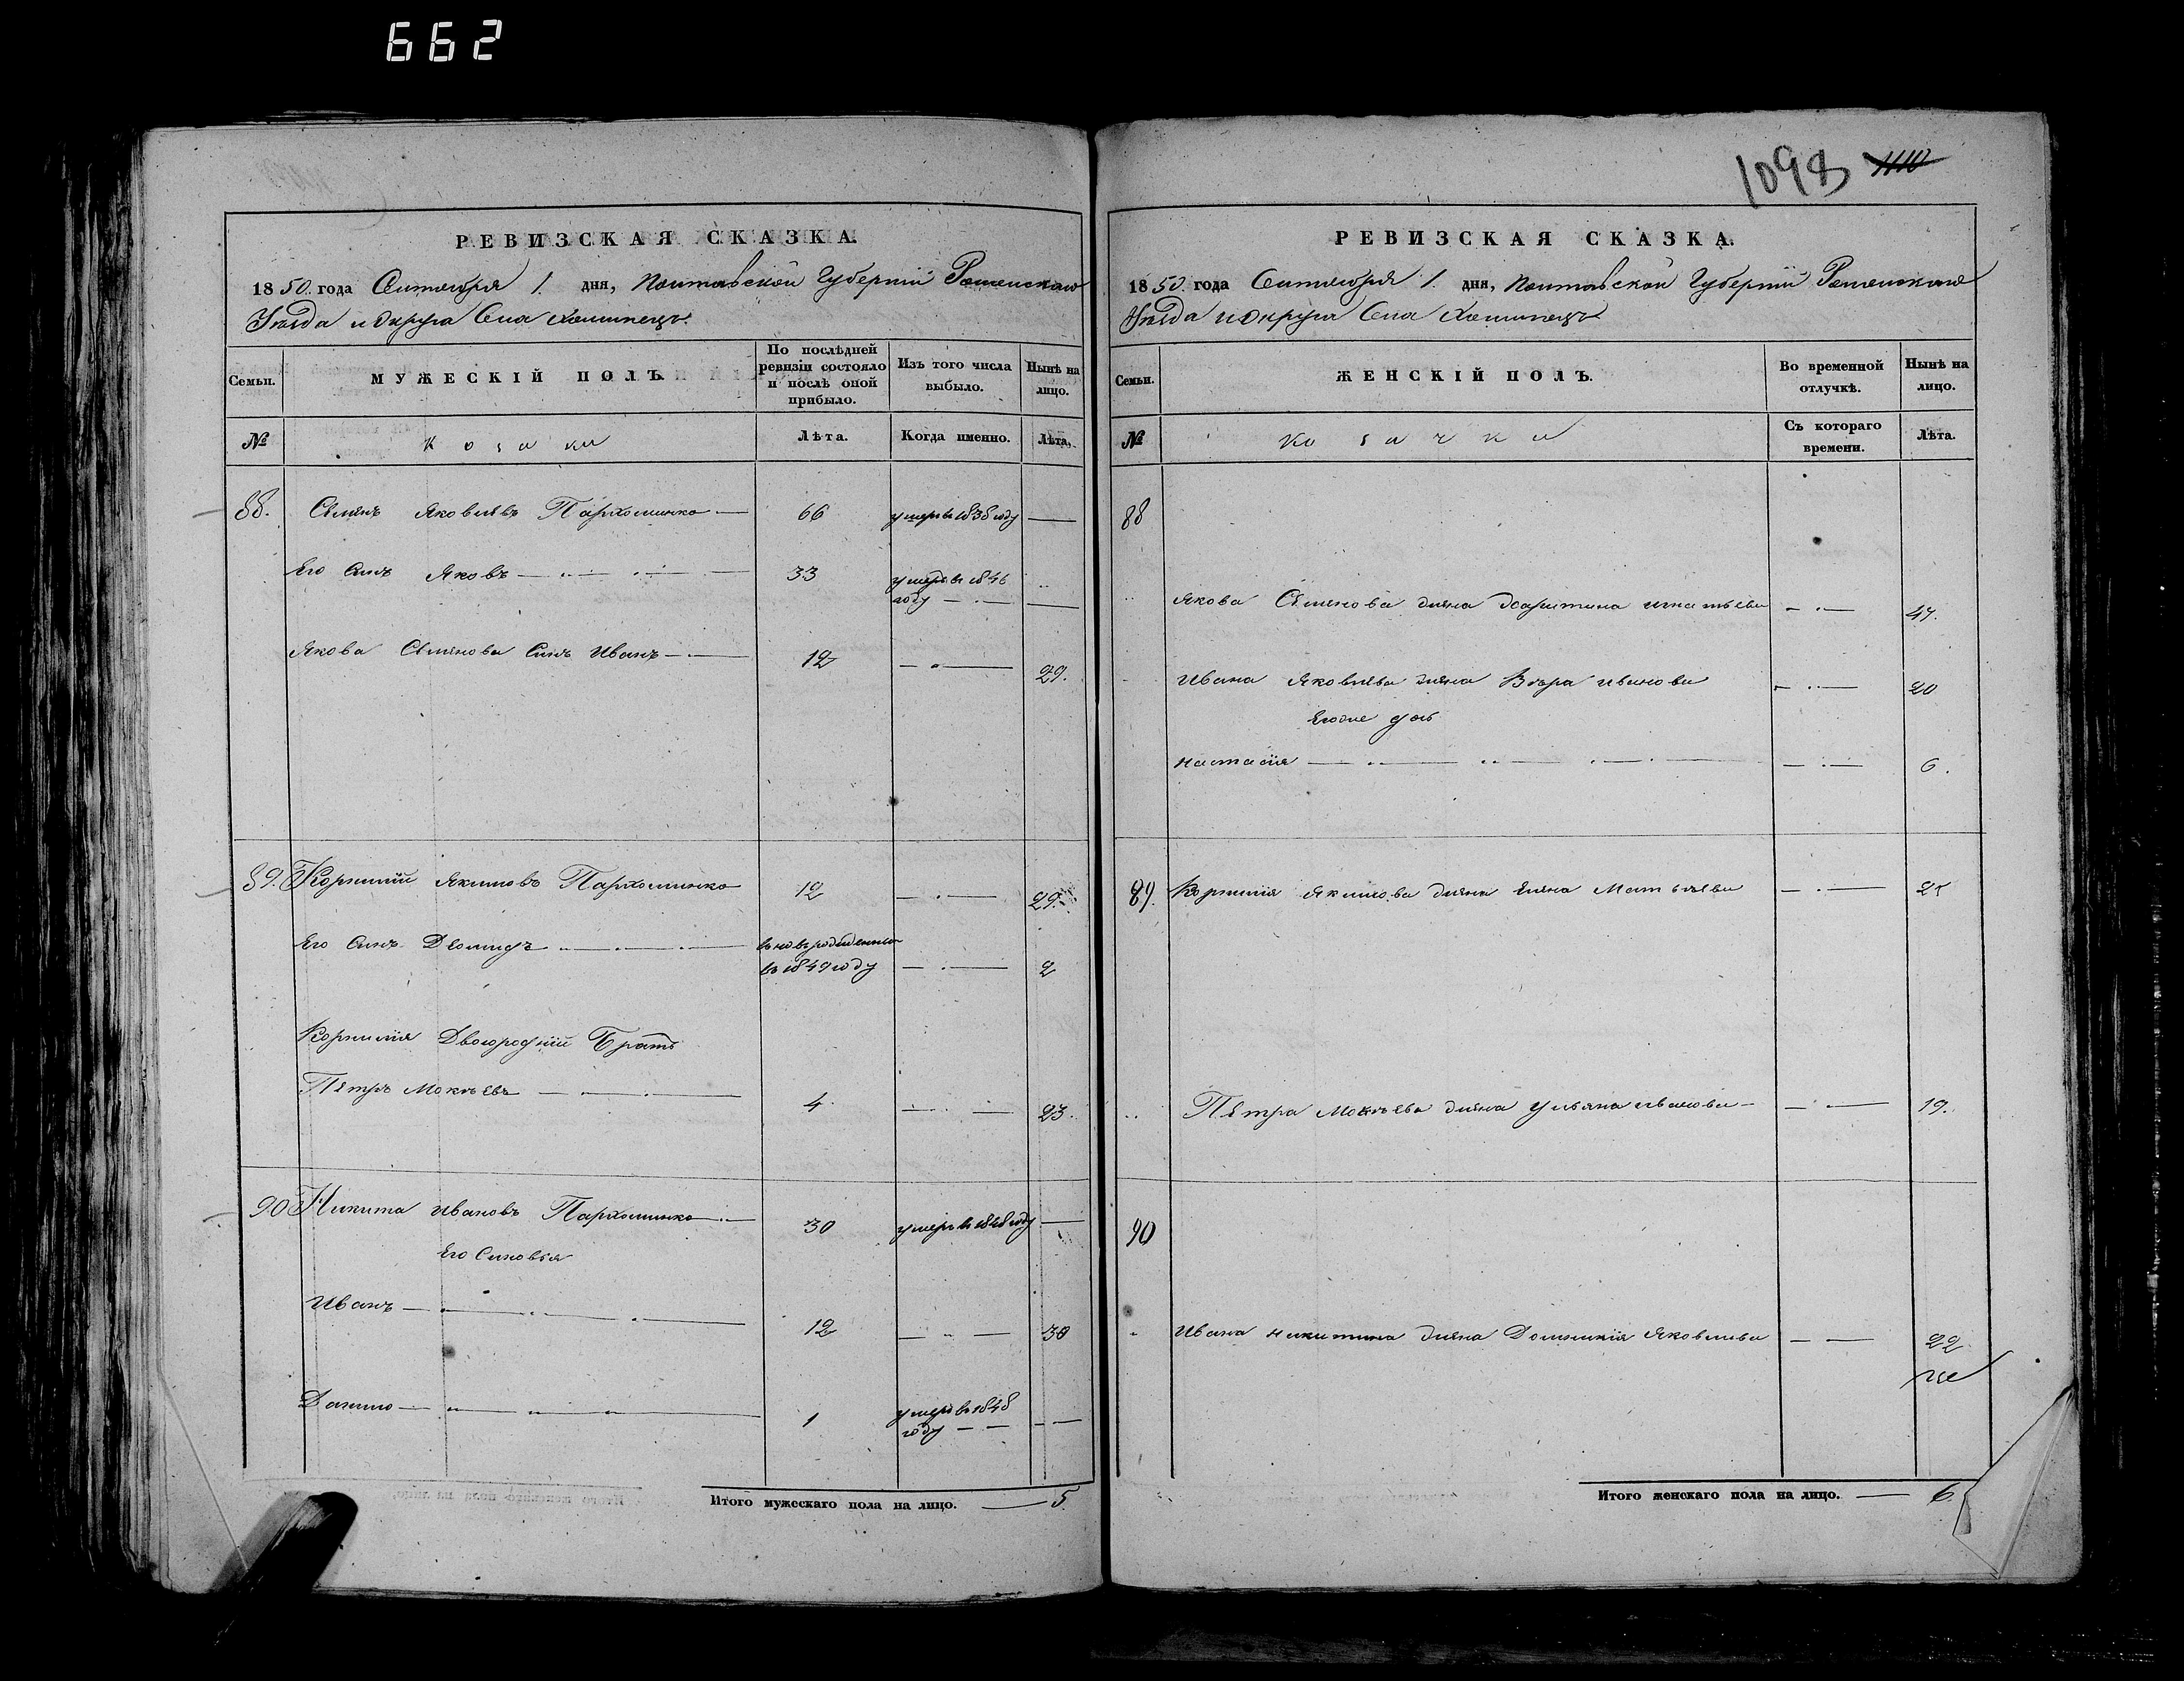 662
1098 1110
РЕВИЗСКАЯ СКАЗКА.
1850. года Сентября 1. дня, Полтавской Губерніи Роменскаго
Уѣзда и округа Села Хоминецъ.
Семьи.
МУЖЕСКІЙ ПОЛЪ.
По послѣдней ревизіи состояло и послѣ оной прибыло.
Изъ того числа выбыло.
Нынѣ на лицо.
№ Козаки Лѣта. Когда именно. Лѣта.
88. Семенъ Яковлевъ Пархоминко — 66 умеръ в 1838 году —
Его Синъ Яковъ — 33 умеръ в 1846
году —
Якова Семенова Синъ Иванъ — 12 — 29.
89. Корнилій Якимовъ Пархоминко 12 — 29.
Его Синъ Деомидъ — вновь рожденный
в 1849 году — 2
Корнилія Двоюродній Братъ
Петръ Мокѣевъ — 4 — 23.
90 Никита Ивановъ Пархоминко — 30 умеръ в 1848 году —
Его Синовья
Иванъ — 12 — 30
Данило — 1 умеръ в 1848
году — —
Итого мужескаго пола на лицо. — 5
РЕВИЗСКАЯ СКАЗКА.
1850. года Сентября 1. дня, Полтавской Губерніи Роменскаго
Уѣзда и округа Села Хоминецъ
Семьи.
ЖЕНСКІЙ ПОЛЪ.
Во временной отлучкѣ.
Нынѣ на лицо.
№ Козачки Съ котораго времени. Лѣта.
88
Якова Семенова жена Харитина Игнатьева — 47.
Ивана Яковлева жена Вѣра Иванова — 20
Егоже дочь
Настасія — 6.
89. Корнилія Якимова жена Елена Матвѣева — 25
Петра Мокѣева жена Ульяна Иванова — 19.
90
Ивана Никитина жена Домникія Яковлева — 22
Итого женскаго пола на лицо. — 6